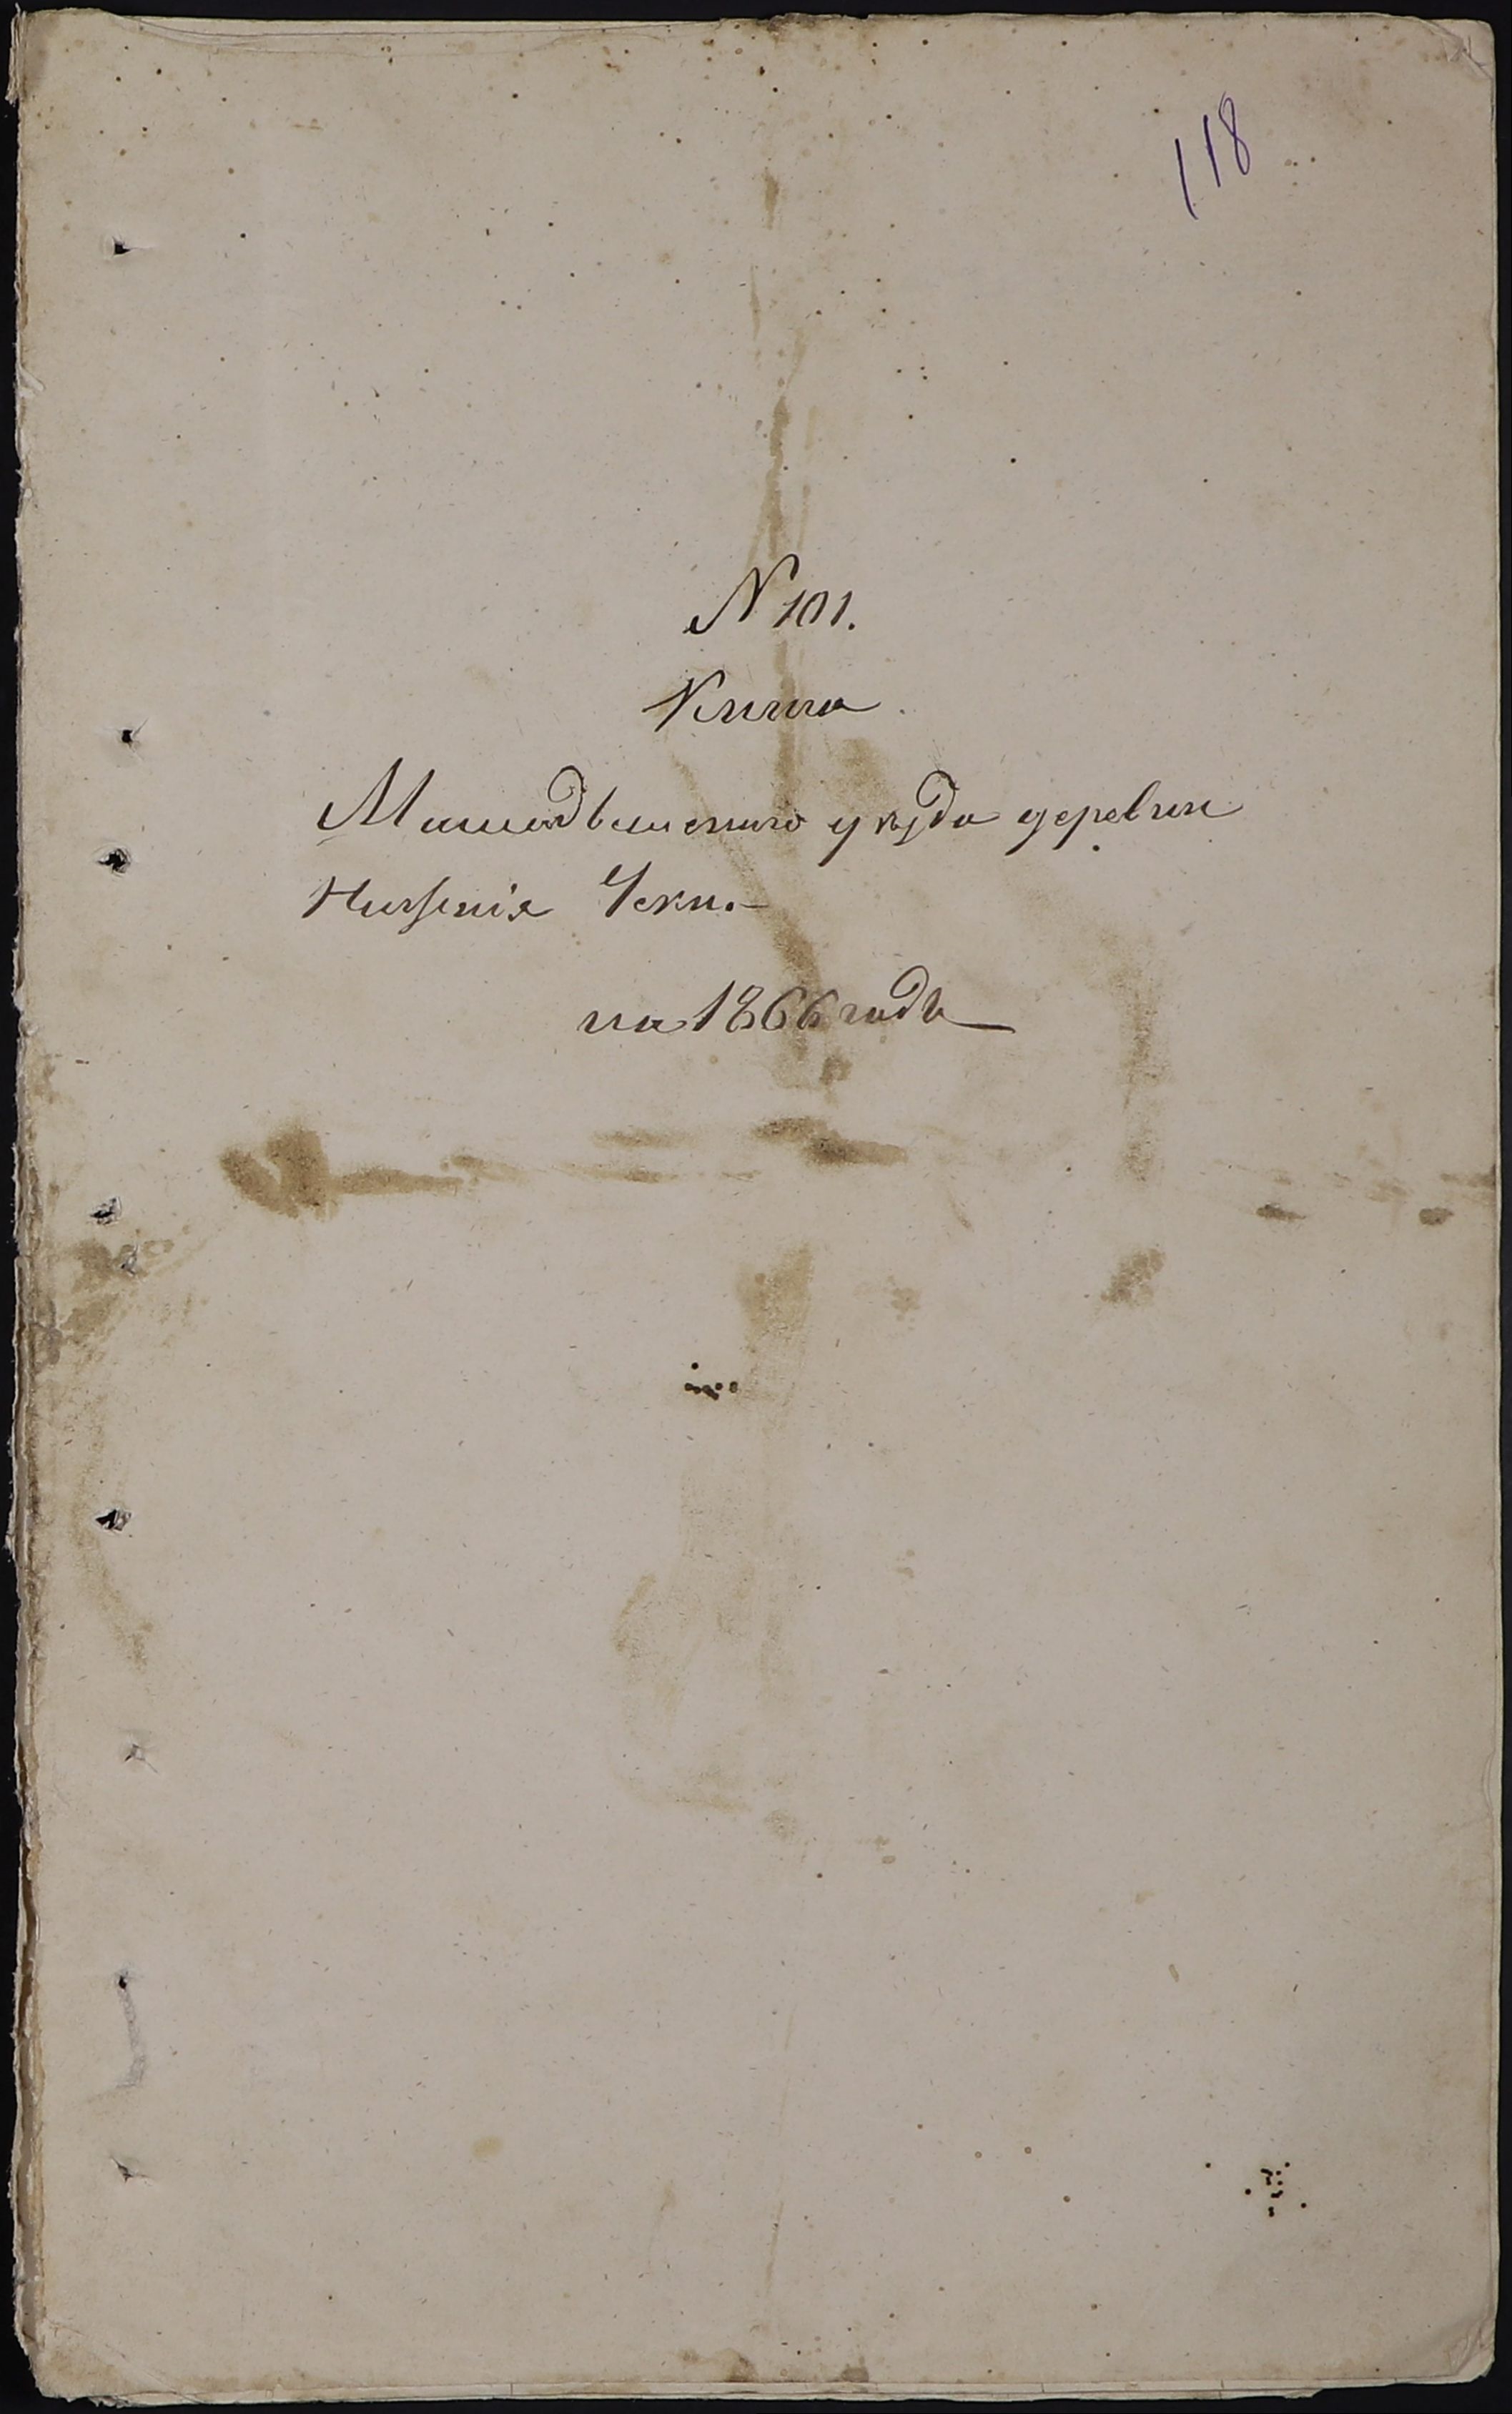 118
N 101.
Книга
Мамадышскаго уѣзда деревни
Нижнія Чеки.
на 1866 годъ